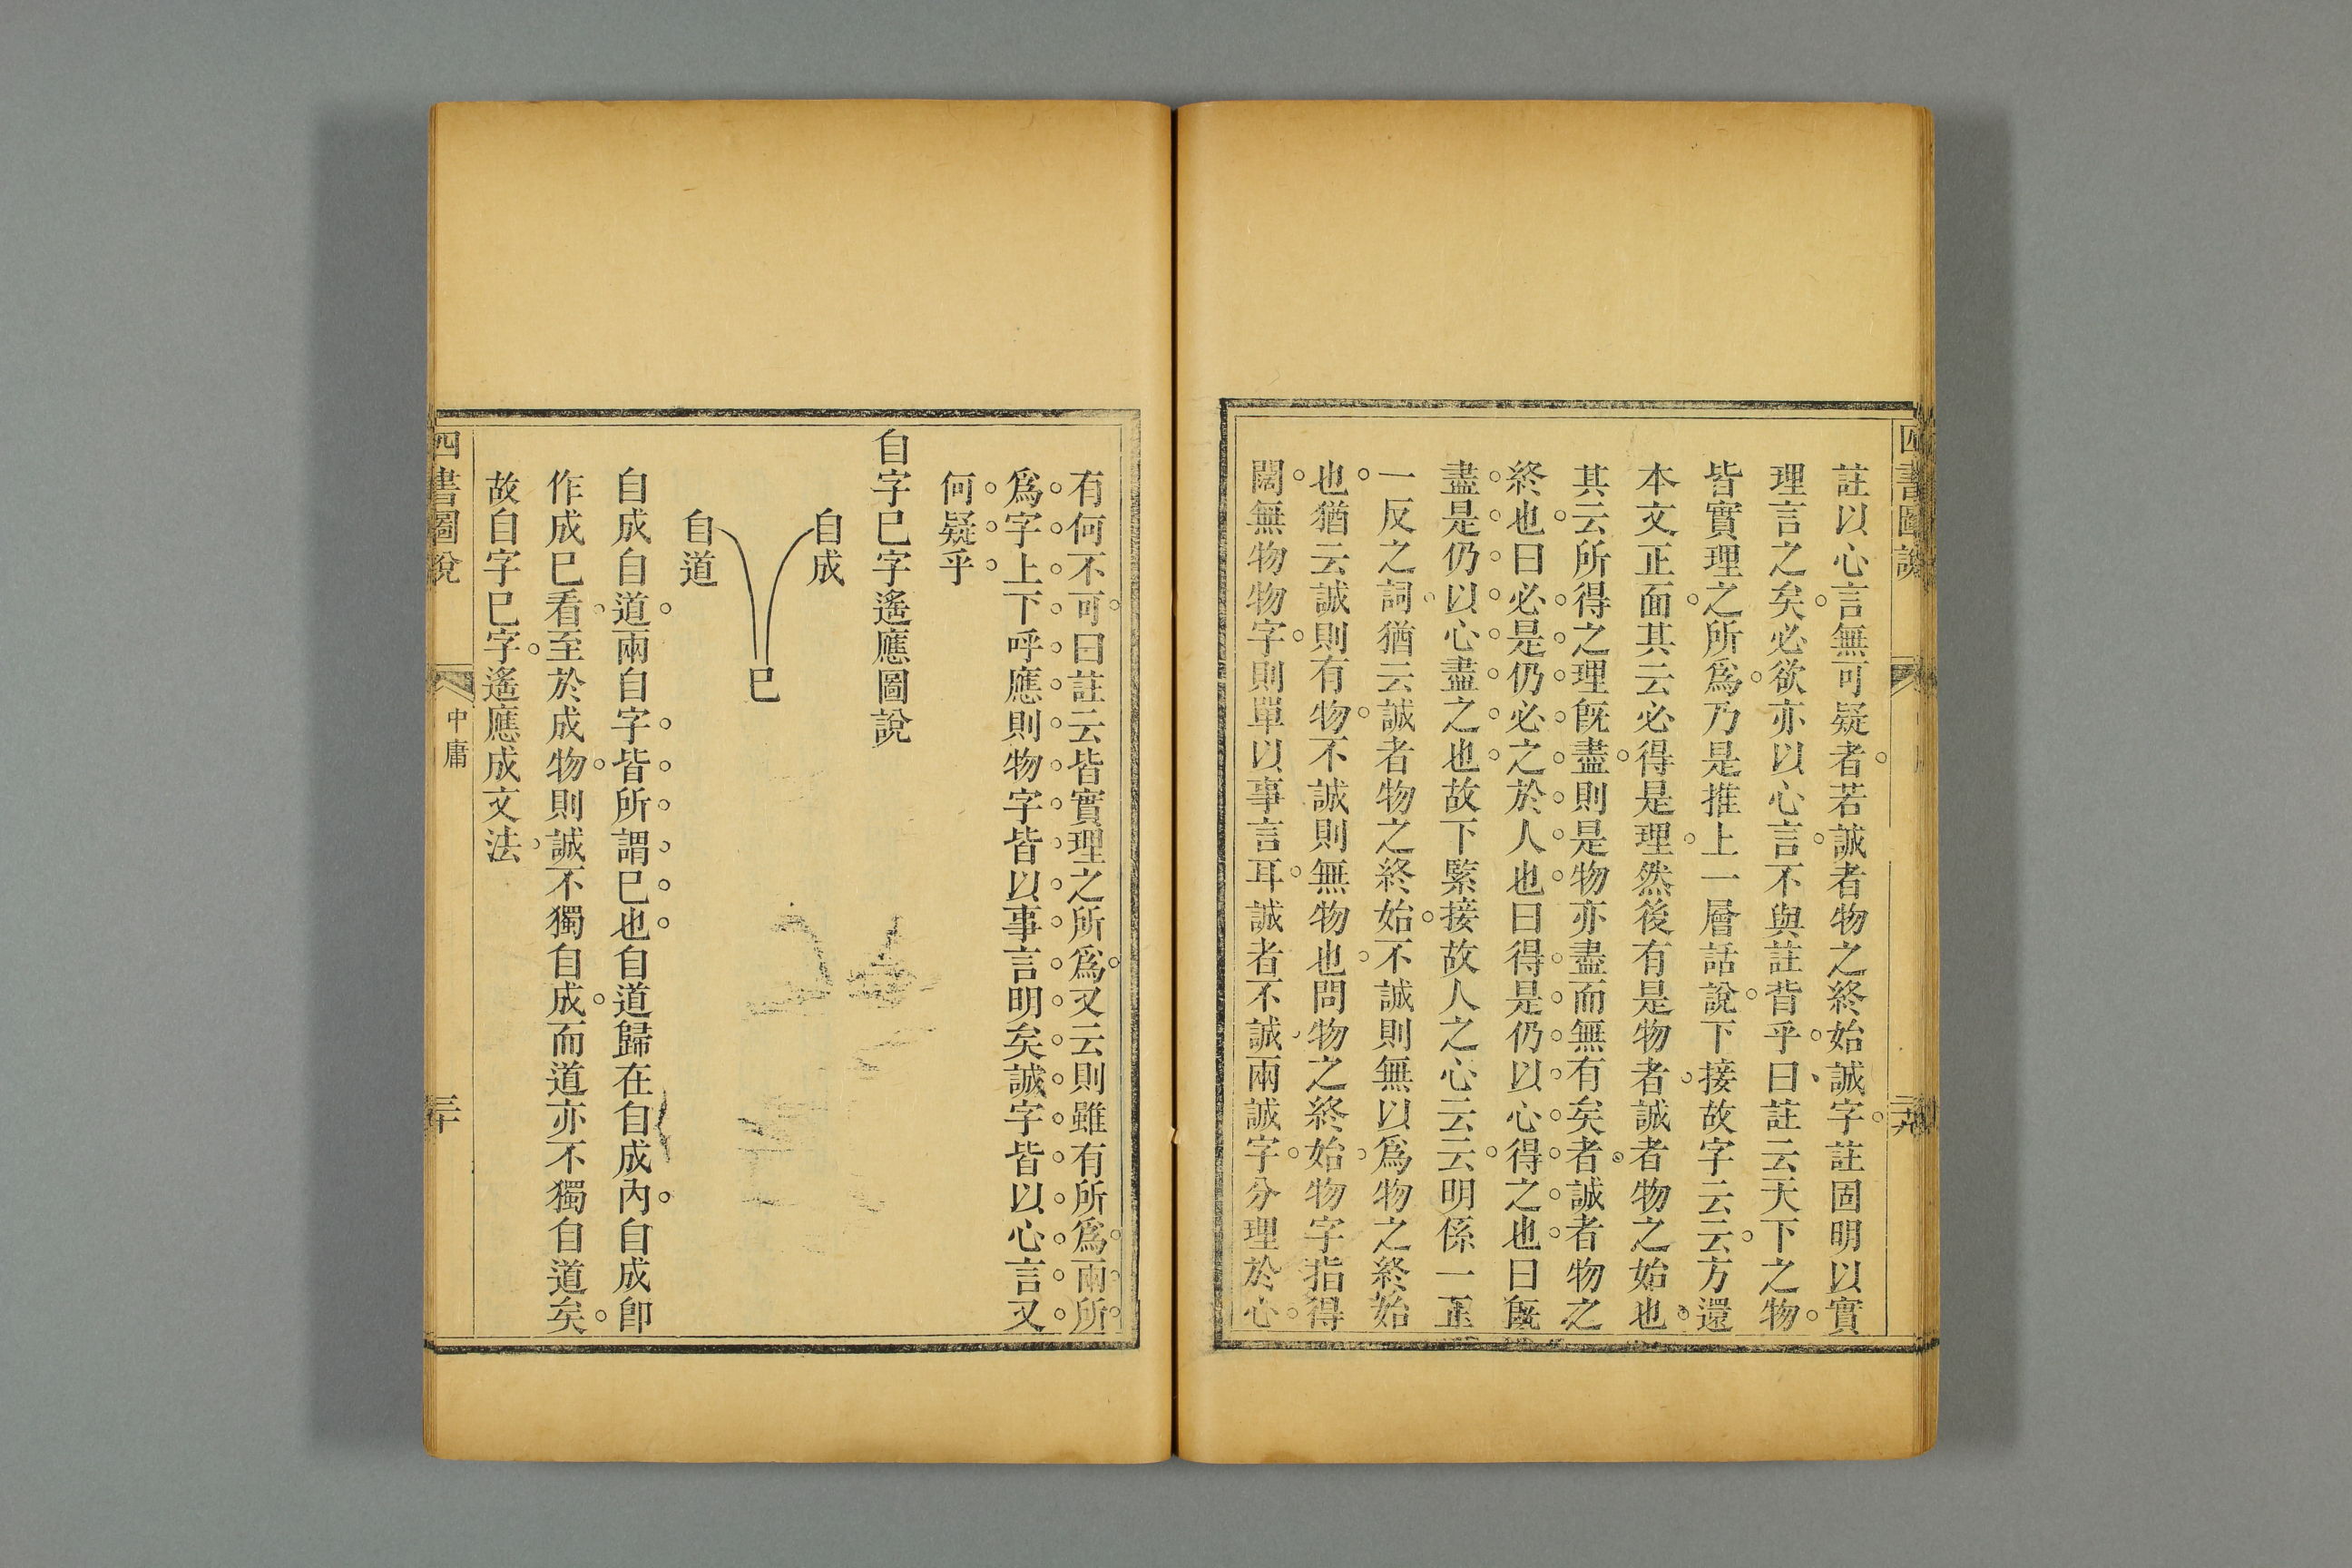 四書圖說
二十九
註以心言無可疑者若誠者物之終始誠字註固明以實
理言之矣必欲亦以心言不與註背乎曰註云天下之物
皆實理之所爲乃是推上一層話說下接故字云云方還
本文正面其云必得是理然後有是物者誠者物之始也
其云所得之理旣盡則是物亦盡而無有矣者誠者物之
終也曰必是仍必之於人也曰得是仍以心得之也曰旣
盡是仍以心盡之也故下緊接故人之心云云明係一正
一反之詞猶云誠者物之終始不誠則無以爲物之終始
也猶云誠則有物不誠則無物也問物之終始物字指得
闊無物物字則單以事言耳誠者不誠兩誠字分理於心
有何不可曰註云皆實理之所爲又云則雖有所爲兩所
爲字上下呼應則物字皆以事言明矣誠字皆以心言又
何疑乎
自字巳字遙應圖說
自成
自道
巳
自成自道兩自字皆所謂巳也自道歸在自成內自成卽
作成巳看至於成物則誠不獨自成而道亦不獨自道矣
故自字巳字遙應成文法
四書圖說
中庸
三十